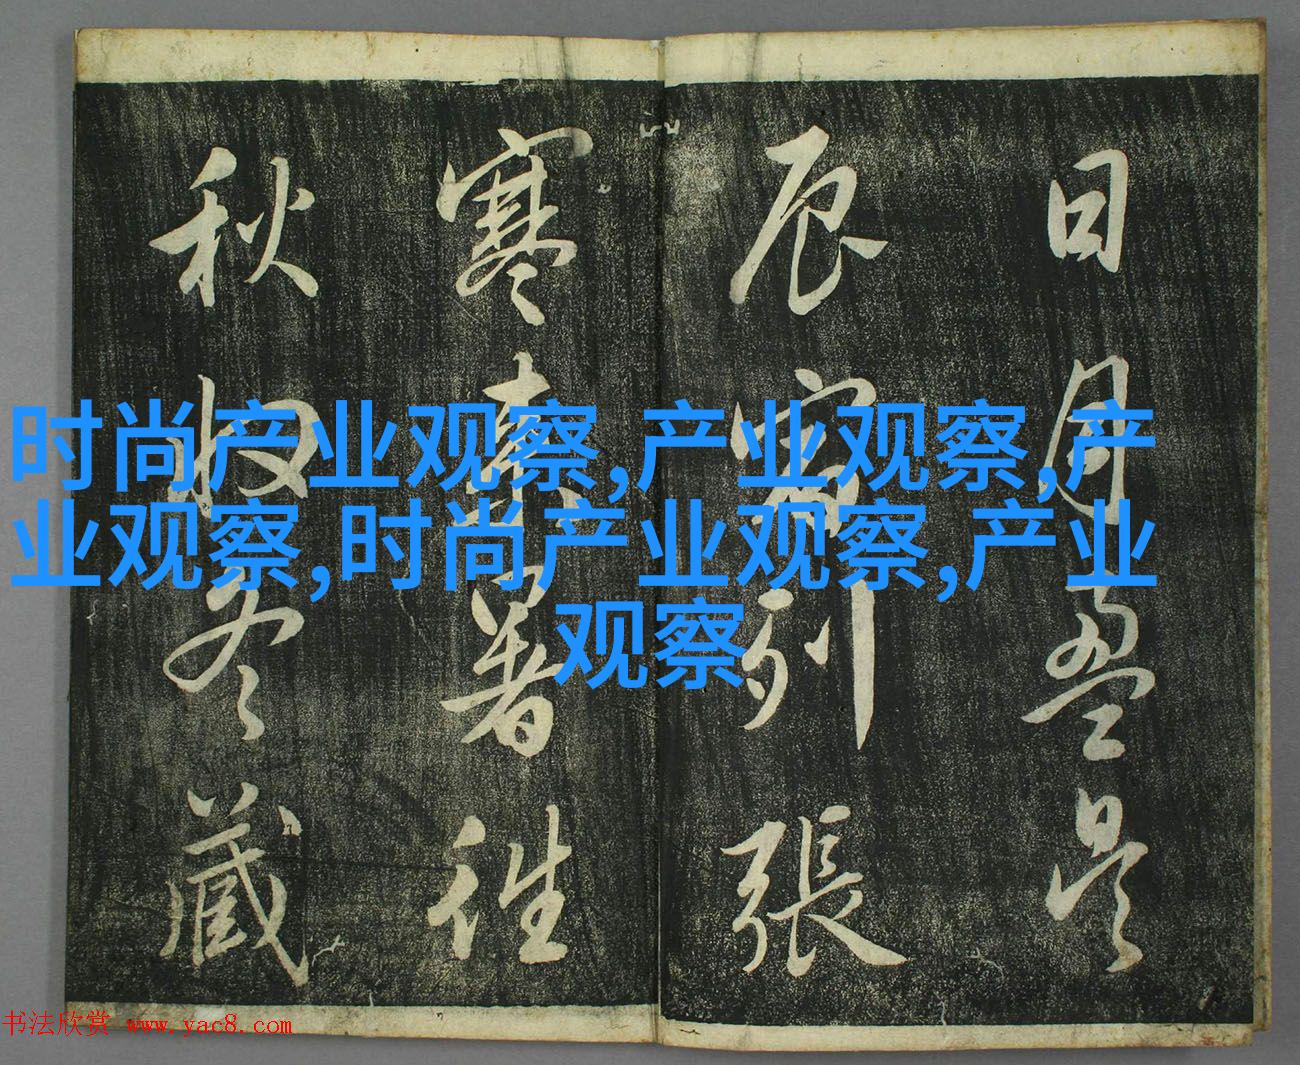 日月盈昃
辰宿列張
寒来暑往
秋收冬藏
时尚产业观察,产业观察,产
业观察,时尚产业观察,产业
观察
书法欣赏 www.yac8.com